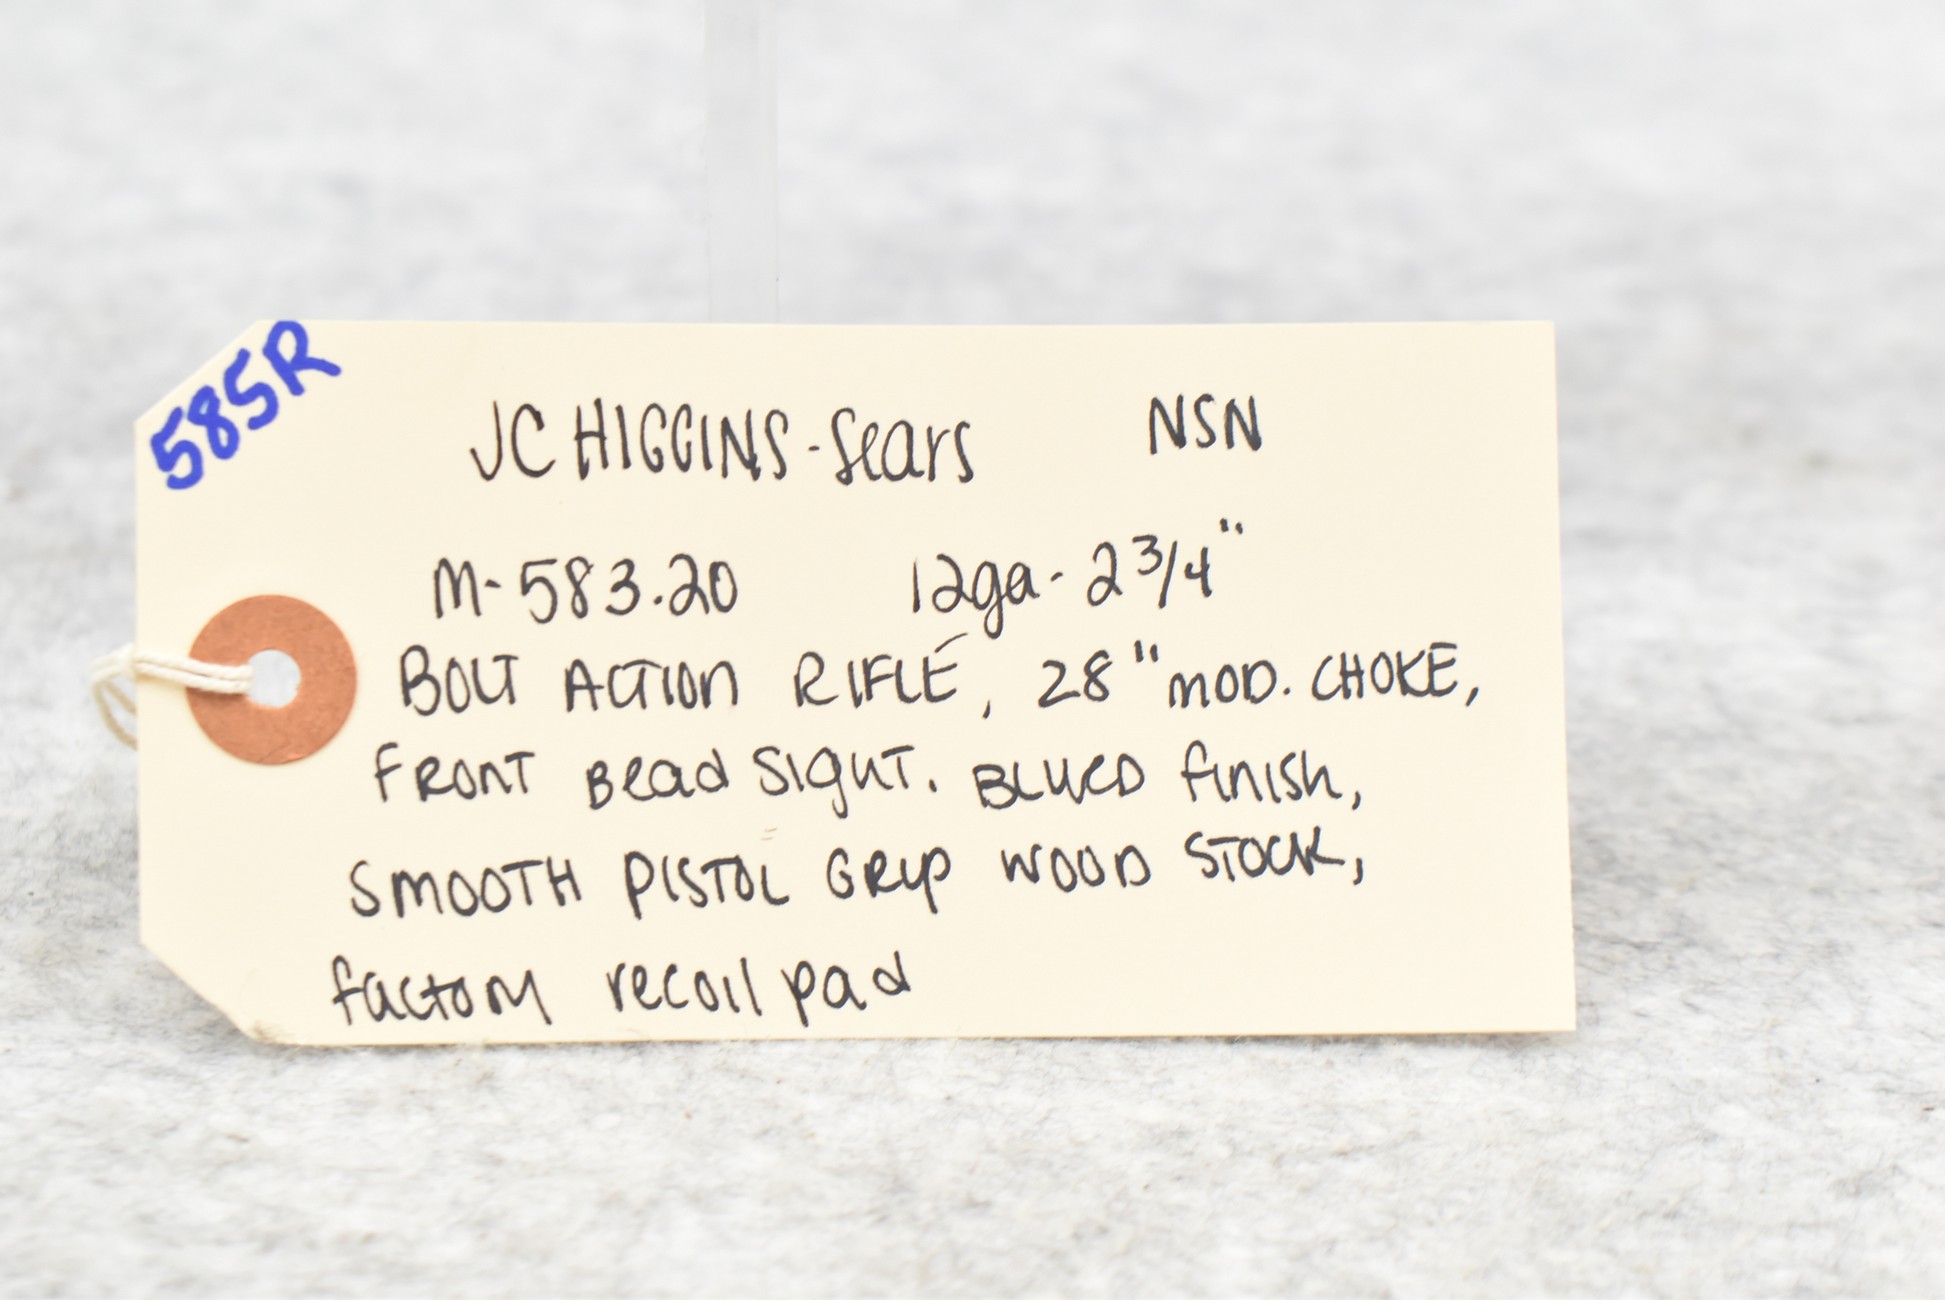 585R
JC HIGGINS - Sears NSN
M-583.20 12ga - 2 3/4"
BOLT ACTION RIFLE, 28" MOD. CHOKE,
FRONT Bead SIGHT. BLUED finish,
SMOOTH PISTOL GRIP WOOD STOCK,
factory recoil pad